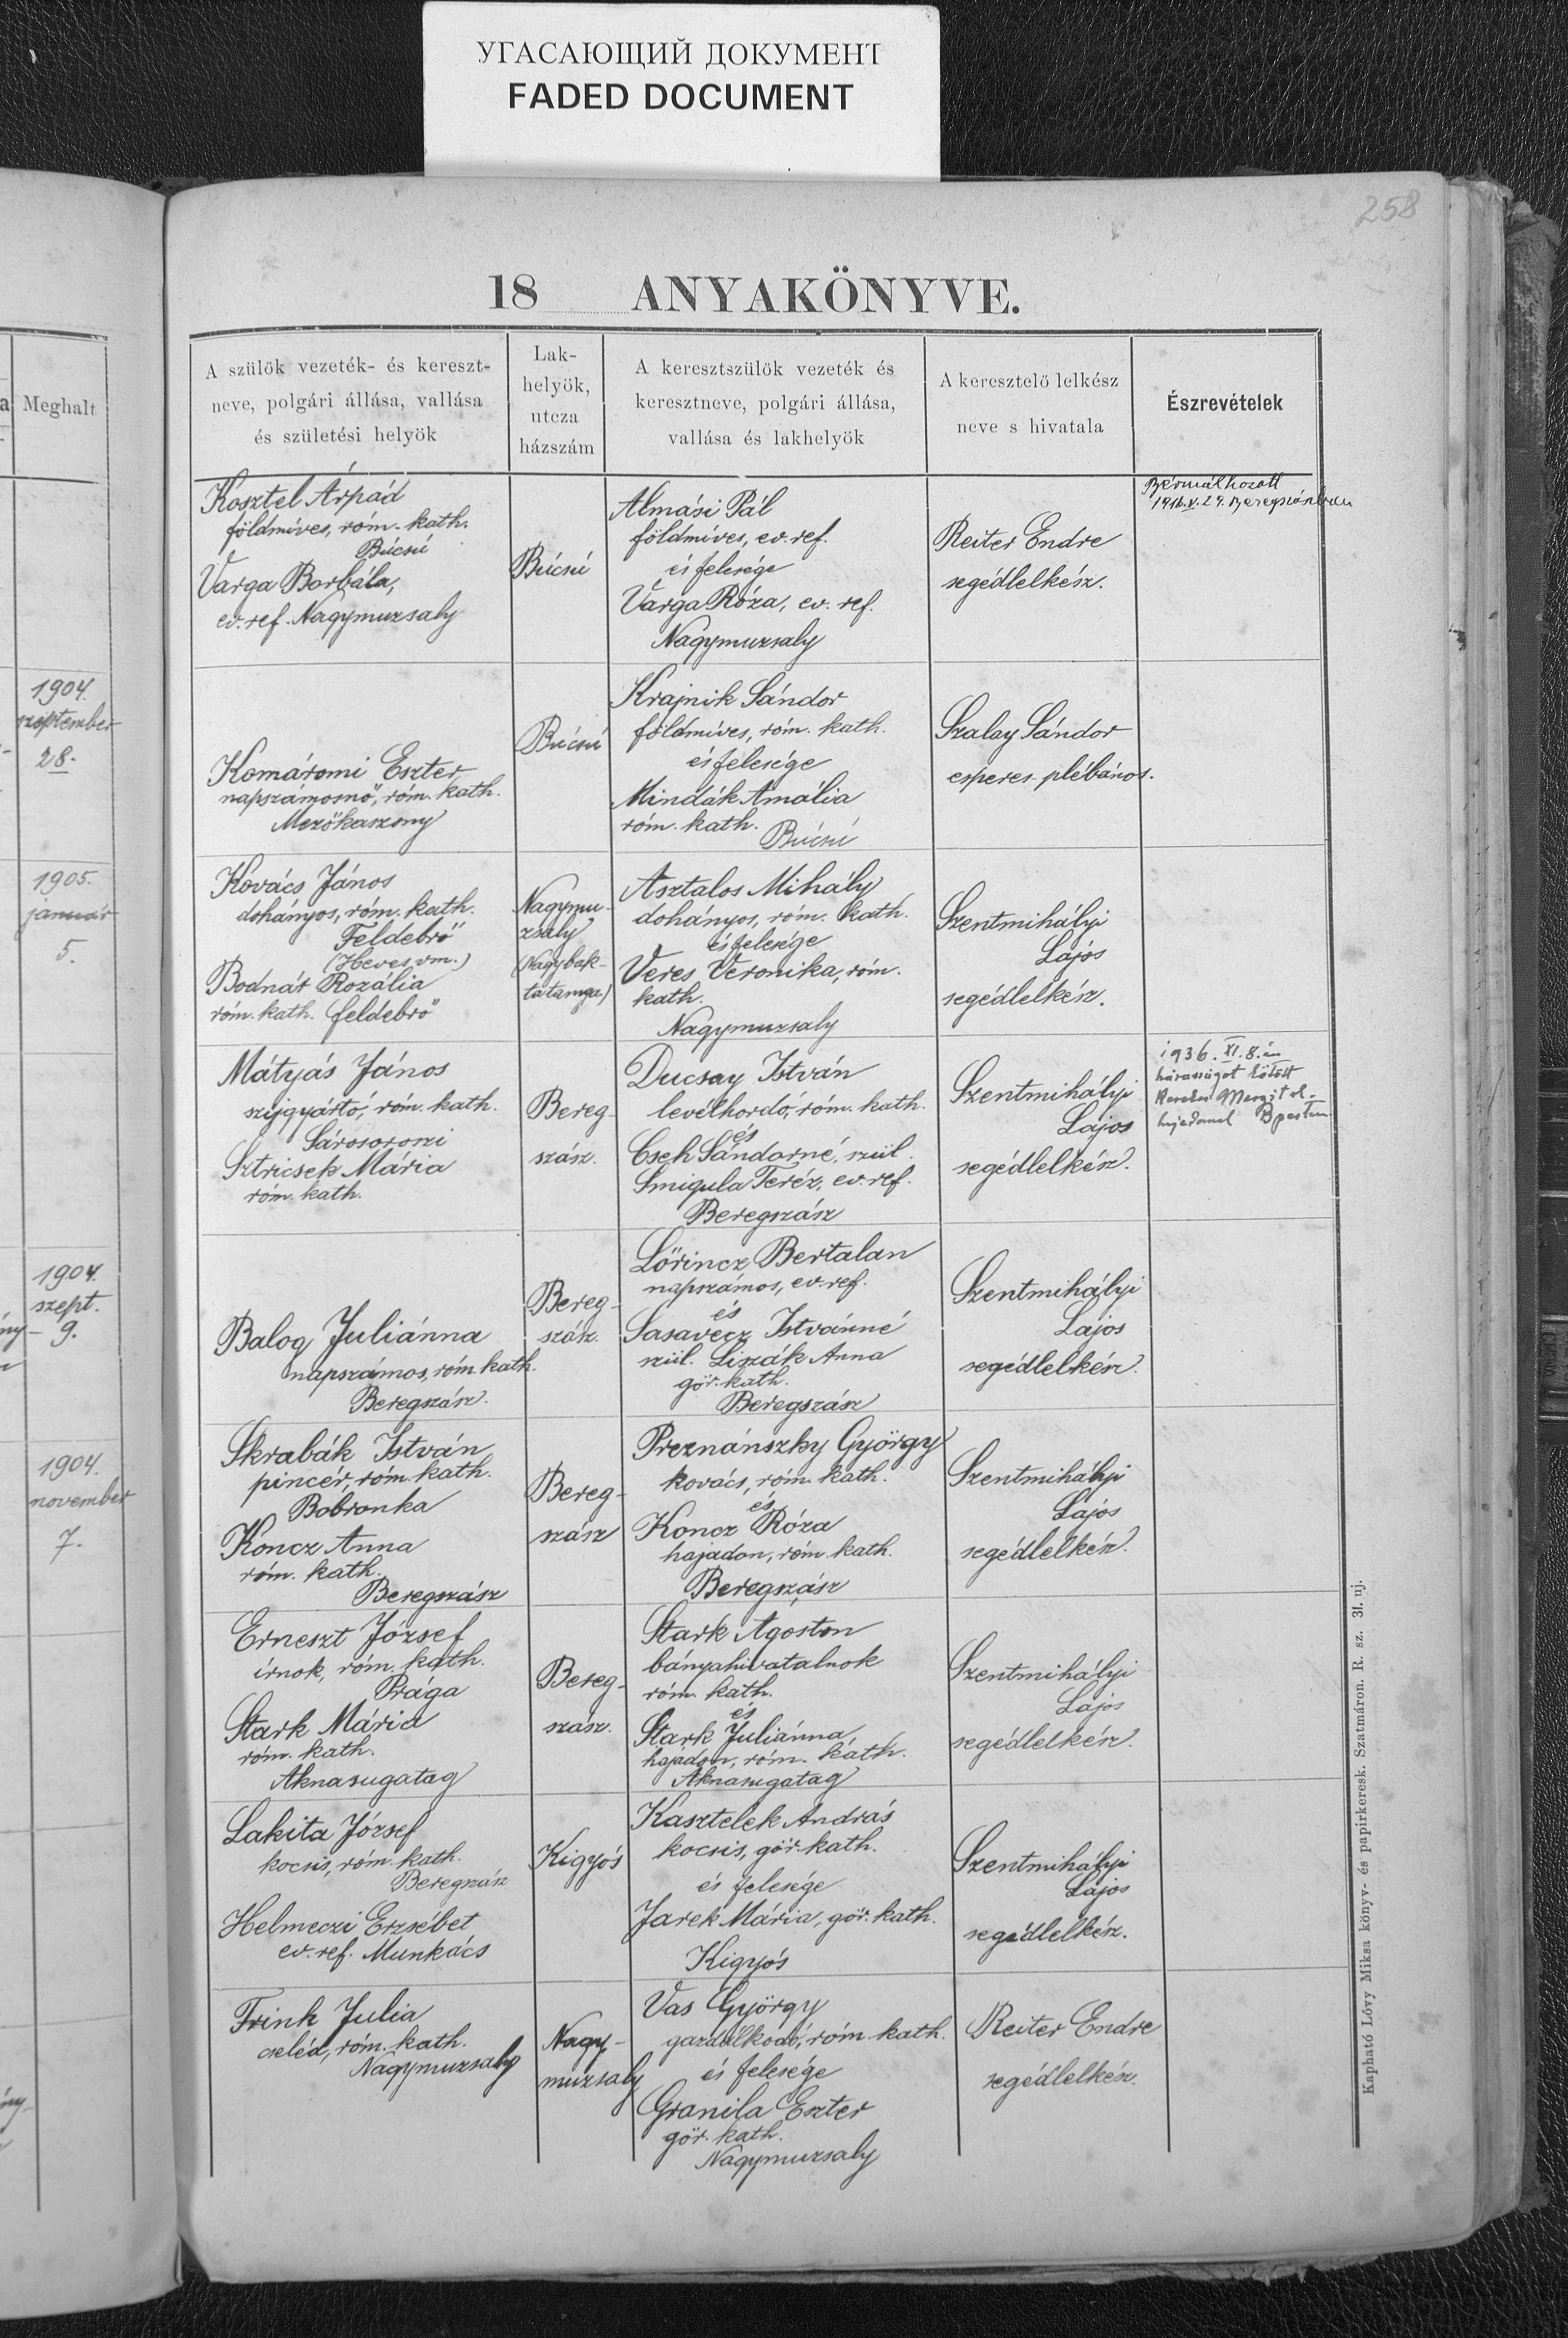 УГАСАЮЩИЙ ДОКУМЕНТ
FADED DOCUMENT
258
18 ANYAKÖNYVE.
Meghalt
A szülők vezeték- és kereszt-
neve, polgári állása, vallása
és születési helyök
Lak-
helyök,
utcza
házszám
A keresztszülők vezeték és
keresztneve, polgári állása,
vallása és lakhelyök
A keresztelő lelkész
neve s hivatala
Észrevételek
Kosztel Árpád
földmíves, róm. kath.
Búcsú
Varga Borbála,
ev. ref. Nagymuzsaly
Búcsú
Almási Pál
földmíves, ev. ref.
és felesége
Varga Róza, ev. ref.
Nagymuzsaly
Reiter Endre
segédlelkész.
Bérmálkozott
1916.V.29. Beregszászban
1904.
szeptember
28.
Komáromi Eszter
napszámosnő, róm. kath.
Mezőkaszony
Búcsú
Krajnik Sándor
földmíves, róm. kath.
és felesége
Mindák Amália
róm. kath.
Búcsú
Szalay Sándor
esperes plébános.
1905.
január
5.
Kovács János
dohányos, róm. kath.
Feldebrő
(Heves vm.)
Bodnár Rozália
róm. kath. feldebrő
Nagymu-
zsaly
(Nagybak-
tatanya)
Asztalos Mihály
dohányos, róm. kath.
és felesége
Veres Veronika, róm.
kath.
Nagymuzsaly
Szentmihályi
Lajos
segédlelkész.
Mátyás János
szíjgyártó, róm. kath.
Sárosoroszi
Sztricsek Mária
róm. kath.
Bereg-
szász.
Ducsay István
levélhordó, róm. kath.
és
Cseh Sándorné, szül.
Smigula Teréz, ev. ref.
Beregszász
Szentmihályi
Lajos
segédlelkész.
1936. XI. 8.-án
házasságot kötött
Kerekes Margit ol.
hajadonnal Bpesten
1904.
szept.
9.
Balog Juliánna
napszámos, róm. kath.
Beregszász.
Bereg-
szász.
Lőrincz Bertalan
napszámos, ev. ref.
és
Sasavecz Istvánné
szül. Liszák Anna
gör. kath.
Beregszász
Szentmihályi
Lajos
segédlelkész.
1904.
november
7.
Skrabák István
pincér, róm. kath.
Bobronka
Koncz Anna
róm. kath.
Beregszász
Bereg-
szász
Preznánszky György
kovács, róm. kath.
és
Koncz Róza
hajadon, róm. kath.
Beregszász
Szentmihályi
Lajos
segédlelkész.
Erneszt József
írnok, róm. kath.
Prága
Stark Mária
róm. kath.
Aknasugatag
Bereg-
szász.
Stark Ágoston
bányahivatalnok
róm. kath.
és
Stark Juliánna,
hajadon, róm. kath.
Aknasugatag
Szentmihályi
Lajos
segédlelkész.
Lakita József
kocsis, róm. kath.
Beregszász
Helmeczi Erzsébet
ev. ref. Munkács
Kigyós
Kasztelek András
kocsis, gör. kath.
és felesége
Jarek Mária, gör. kath.
Kigyós
Szentmihályi
Lajos
segédlelkész.
Frink Julia
cseléd, róm. kath.
Nagymuzsaly
Nagy-
muzsaly
Vas György
gazdálkodó, róm. kath.
és felesége
Granila Eszter
gör. kath.
Nagymuzsaly
Reiter Endre
segédlelkész.
Kapható Lóvy Miksa könyv- és papirkeresk. Szatmáron. R. sz. 31. uj.